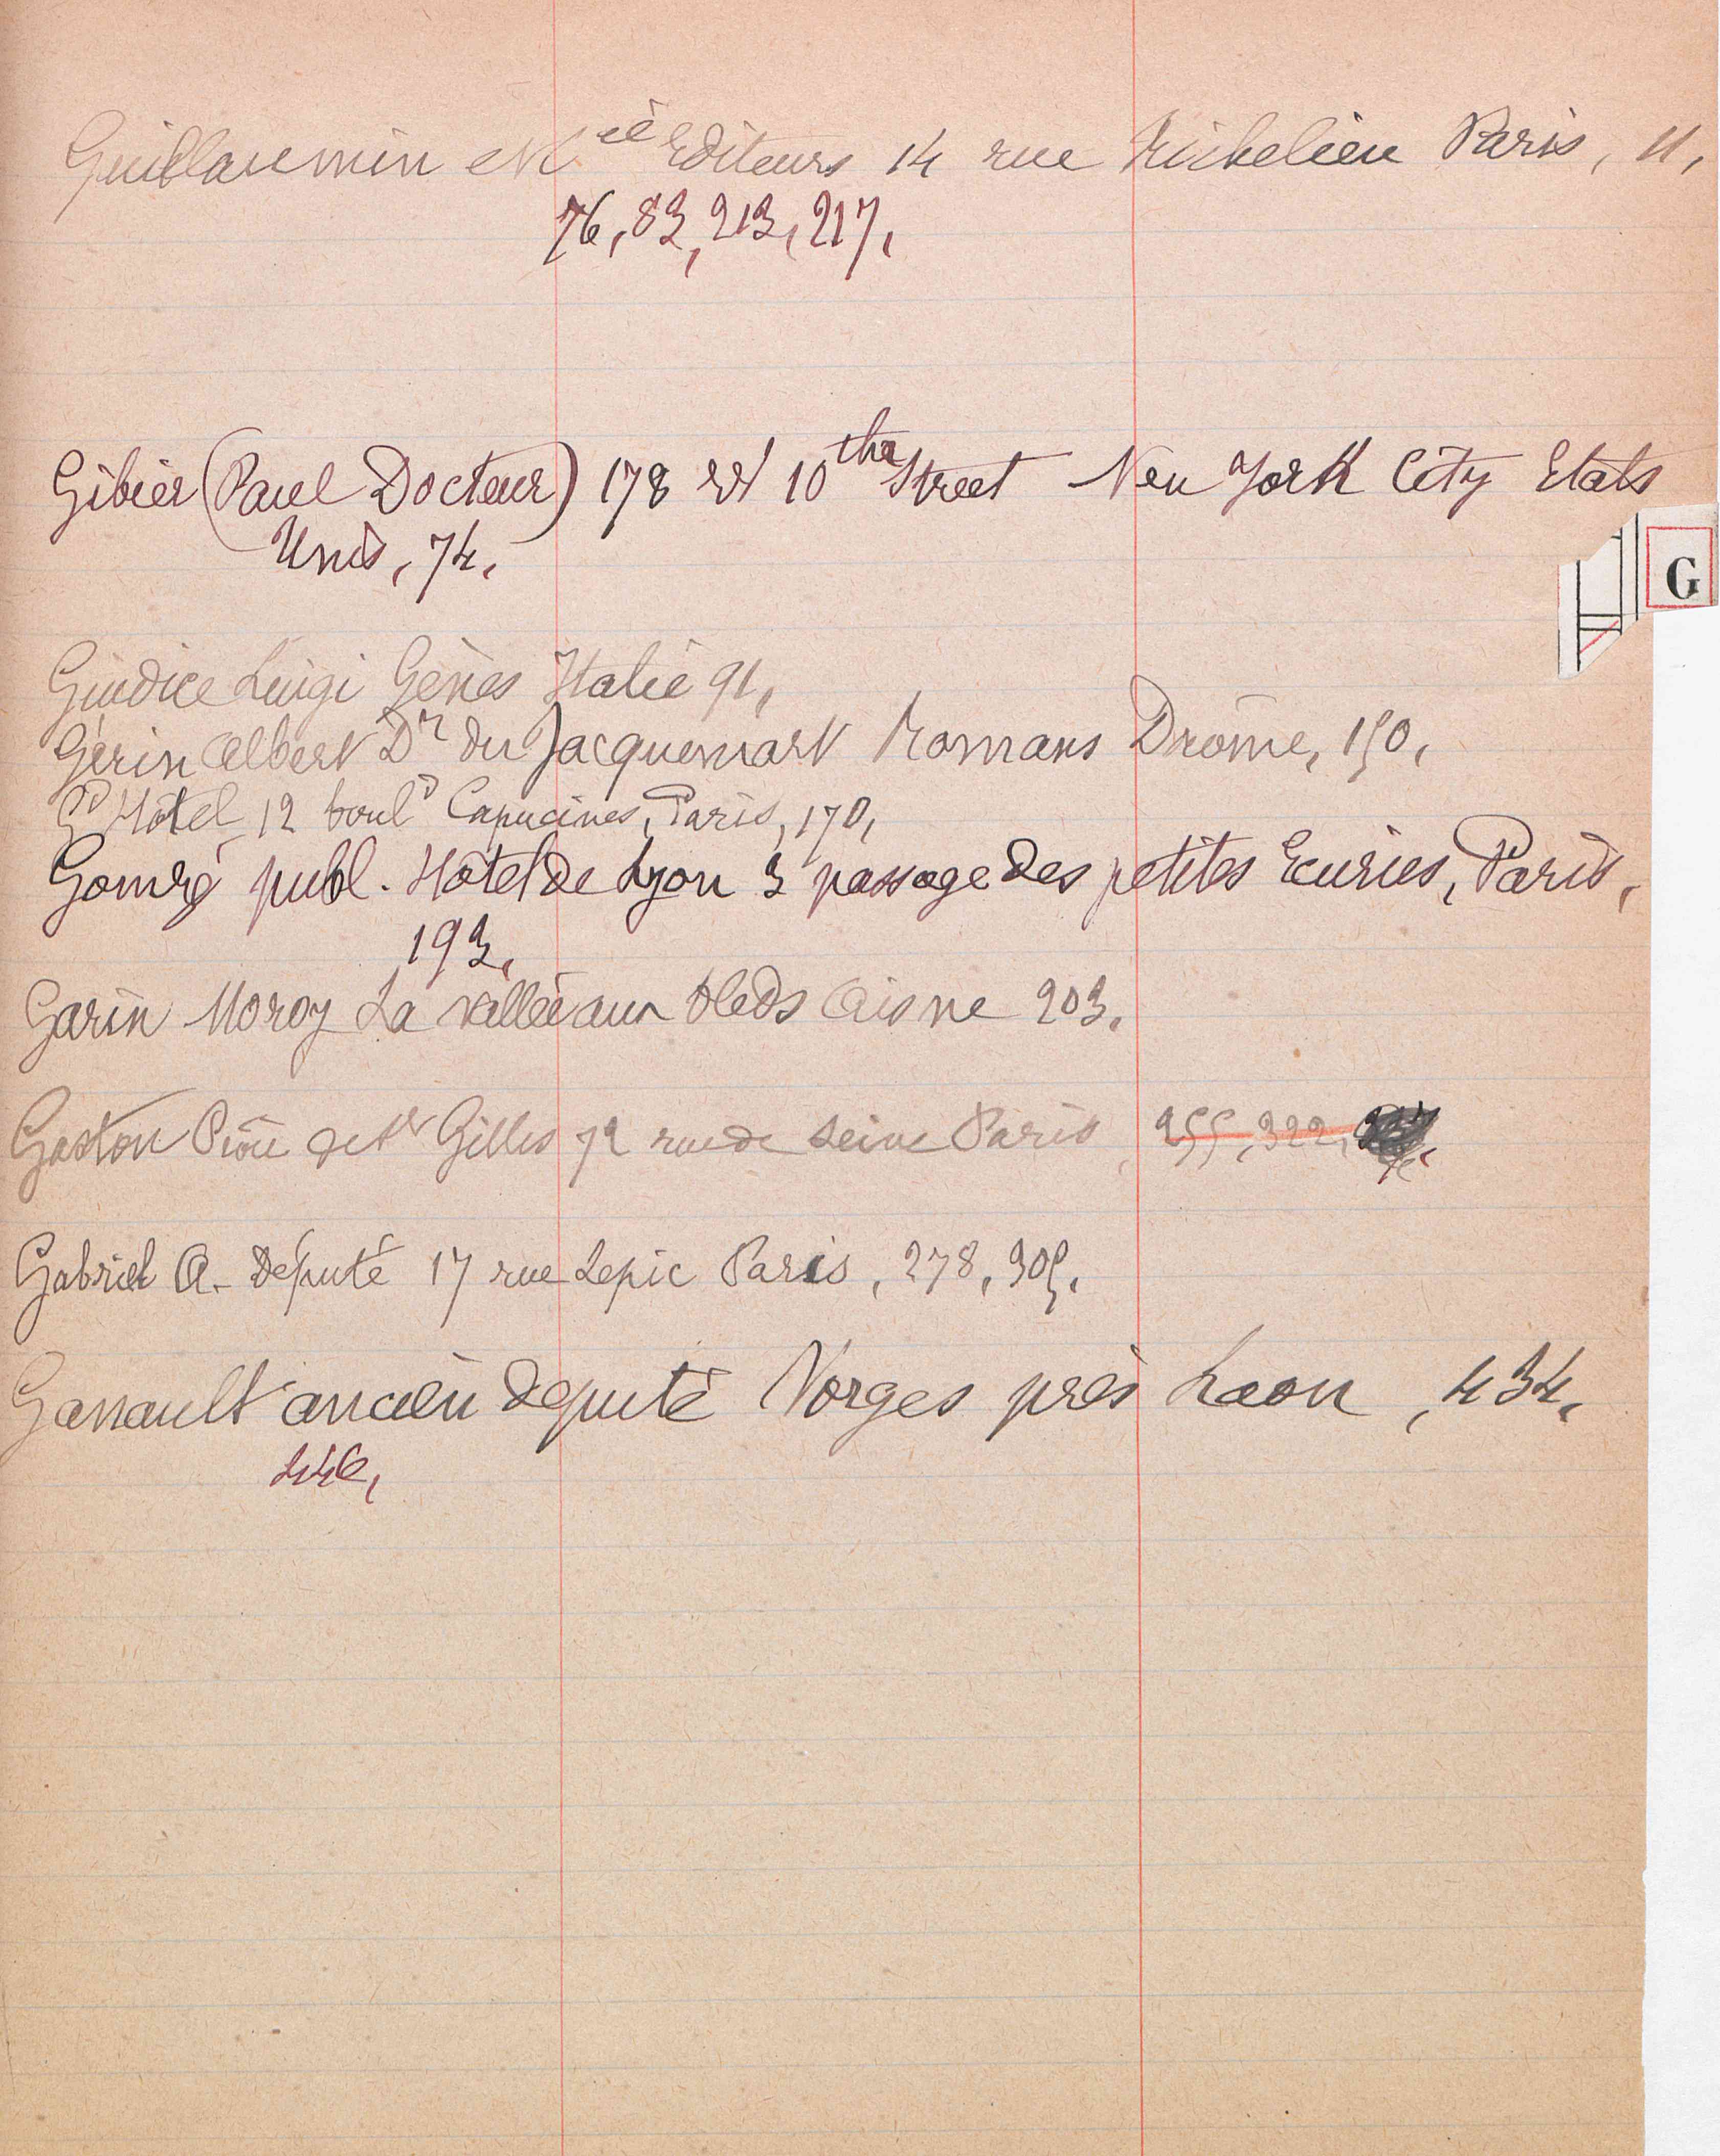 Guillaumin et Cie Editeurs 14 rue Richelieu Paris, 11,
76, 83, 213, 217,
Gibier (Paul Docteur) 178 10th Street New York City Etats
Unis, 74,
G
Giudice Luigi Gênes Italie 91,
Gérin Albert Dr du Jacquemart Romans Drôme, 150,
Gd Hôtel 12 bould Capucines, Paris, 170,
publ. Hôtel de Lyon 3 passage des petites Ecuries, Paris,
193,
Garin Moroy La vallée aux bleds Aisne 203,
Gaston Gilles 72 rue de Seine Paris, 255, 322,
Gabriel A. Député 17 rue Lepic Paris, 278, 305,
Ganault ancien député Vorges près Laon, 434,
446,